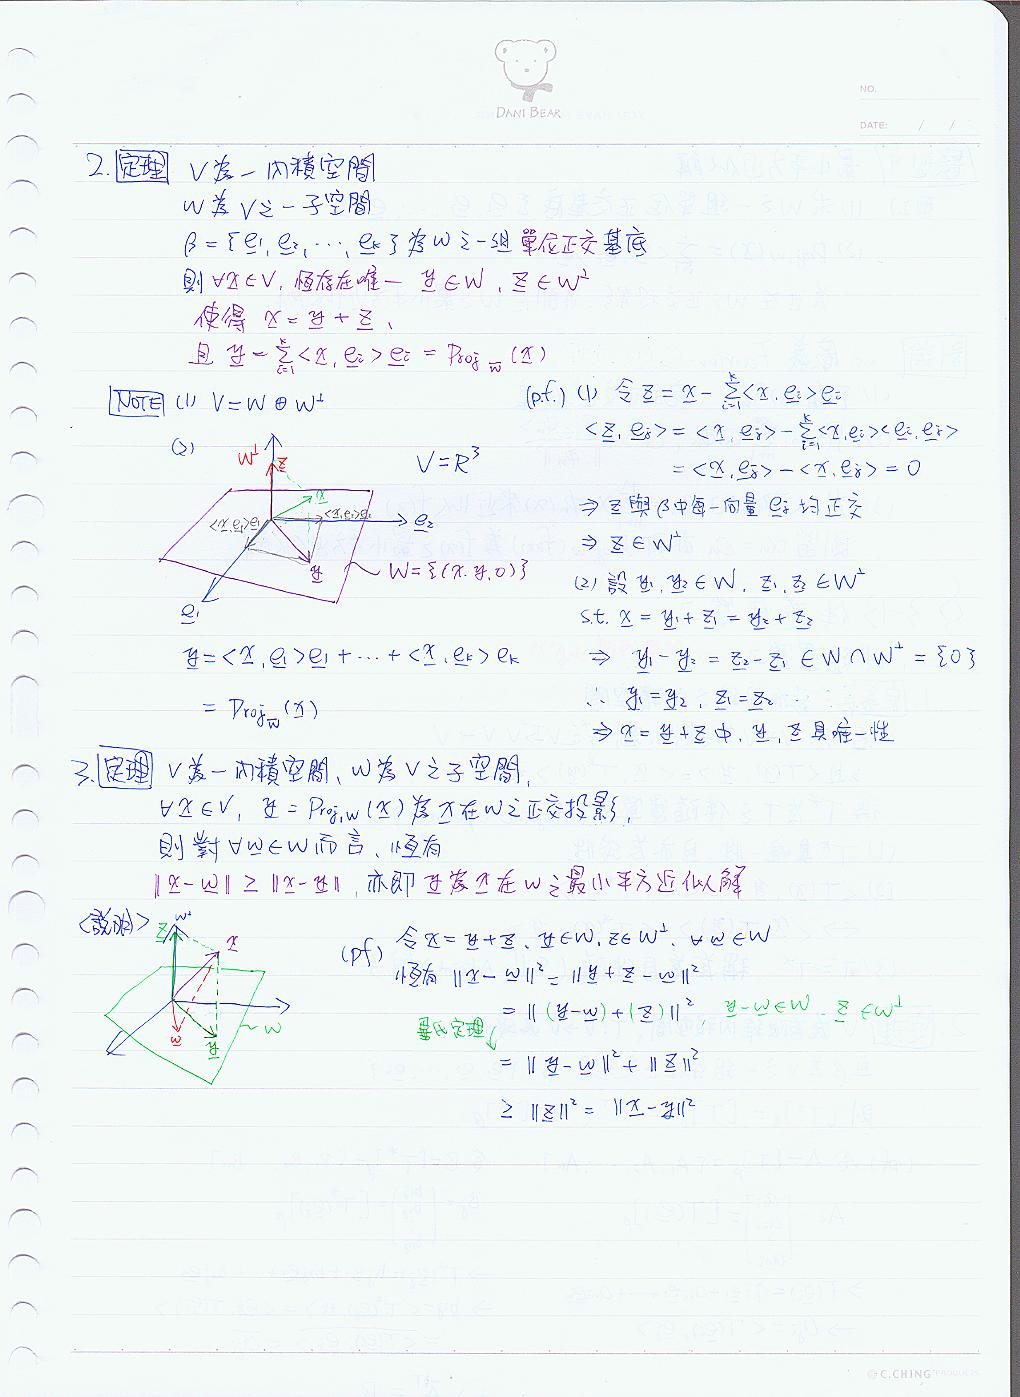 DANI BEAR
NO.
DATE: / /
2. 定理 V為一內積空間
W為V之一子空間
β = {e₁, e₂, ⋯, eₖ} 為W之一組單位正交基底
則 ∀x∈V, 恆存在唯一 y∈W, z∈W⊥
使得 x = y + z,
且 y = Σᵢ₌₁ᵏ <x, eᵢ> eᵢ = Proj_W (x)
NOTE (1) V = W ⊕ W⊥
(2)
W⊥
z
x
<x, e₁>e₁
<x, e₂>e₂
e₂
y
e₁
V = R³
W = {(x, y, 0)}
y = <x, e₁>e₁ + ⋯ + <x, eₖ>eₖ
= Proj_W (x)
(pf.) (1) 令 z = x − Σᵢ₌₁ᵏ <x, eᵢ> eᵢ
<z, eⱼ> = <x, eⱼ> − Σᵢ₌₁ᵏ <x, eᵢ><eᵢ, eⱼ>
= <x, eⱼ> − <x, eⱼ> = 0
⇒ z與β中每一向量 eⱼ 均正交
⇒ z ∈ W⊥
(2) 設 y₁, y₂ ∈ W, z₁, z₂ ∈ W⊥
s.t. x = y₁ + z₁ = y₂ + z₂
⇒ y₁ − y₂ = z₂ − z₁ ∈ W ∩ W⊥ = {0}
∴ y₁ = y₂, z₁ = z₂
⇒ x = y + z 中, y, z 具唯一性
3. 定理 V為一內積空間, W為V之子空間,
∀x∈V, y = Proj_W (x) 為x在W之正交投影,
則對 ∀w∈W而言, 恆有
||x − w|| ≥ ||x − y||, 亦即 y為x在W之最小平方近似解
<說明>
W⊥
z
x
w
y
W
(pf) 令 x = y + z, y∈W, z∈W⊥, ∀w∈W
恆有 ||x − w||² = ||y + z − w||²
= ||(y − w) + (z)||² y − w ∈ W, z ∈ W⊥
畢氏定理
= ||y − w||² + ||z||²
≥ ||z||² = ||x − y||²
C.CHING PRODUCTS